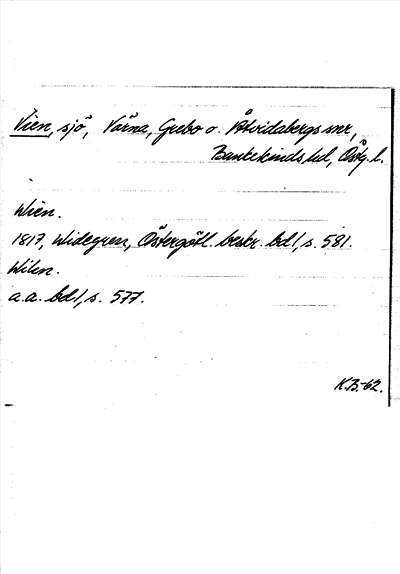 Vien, sjö, Värna, Grebo o. Åtvidabergs snr,
Bankekinds hd, Östg. l.
Wien.
1817, Widegren, Östergötl. beskr. bd 1, s. 581.
Wilen.
a.a. bd 1, s. 577.
K.B.-62.